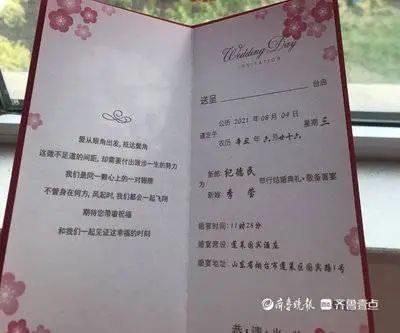 爱从眼角出发,抵达鬓角
这微不足道的间距,却需要付出跋涉一生的努力
我们是同一颗心上的一对翅膀
不管身在何方,风起时,我们都会一起飞翔
期待您带着祝福
和我们一起见证这幸福的时刻
Wedding Day
INVITATION
送呈 台启
谨定于
公历 2021 年 08 月 04 日 星期 三
农历 辛丑 年 六 月 廿十六
为
新郎 纪德民
新娘 季莹
举行结婚典礼·敬备喜宴
婚宴时间:11时28分
婚宴席设:蓬莱国宾酒店
婚宴地址:山东省烟台市蓬莱区国宾路1号
恭请光
齐鲁晚报 齐鲁壹点